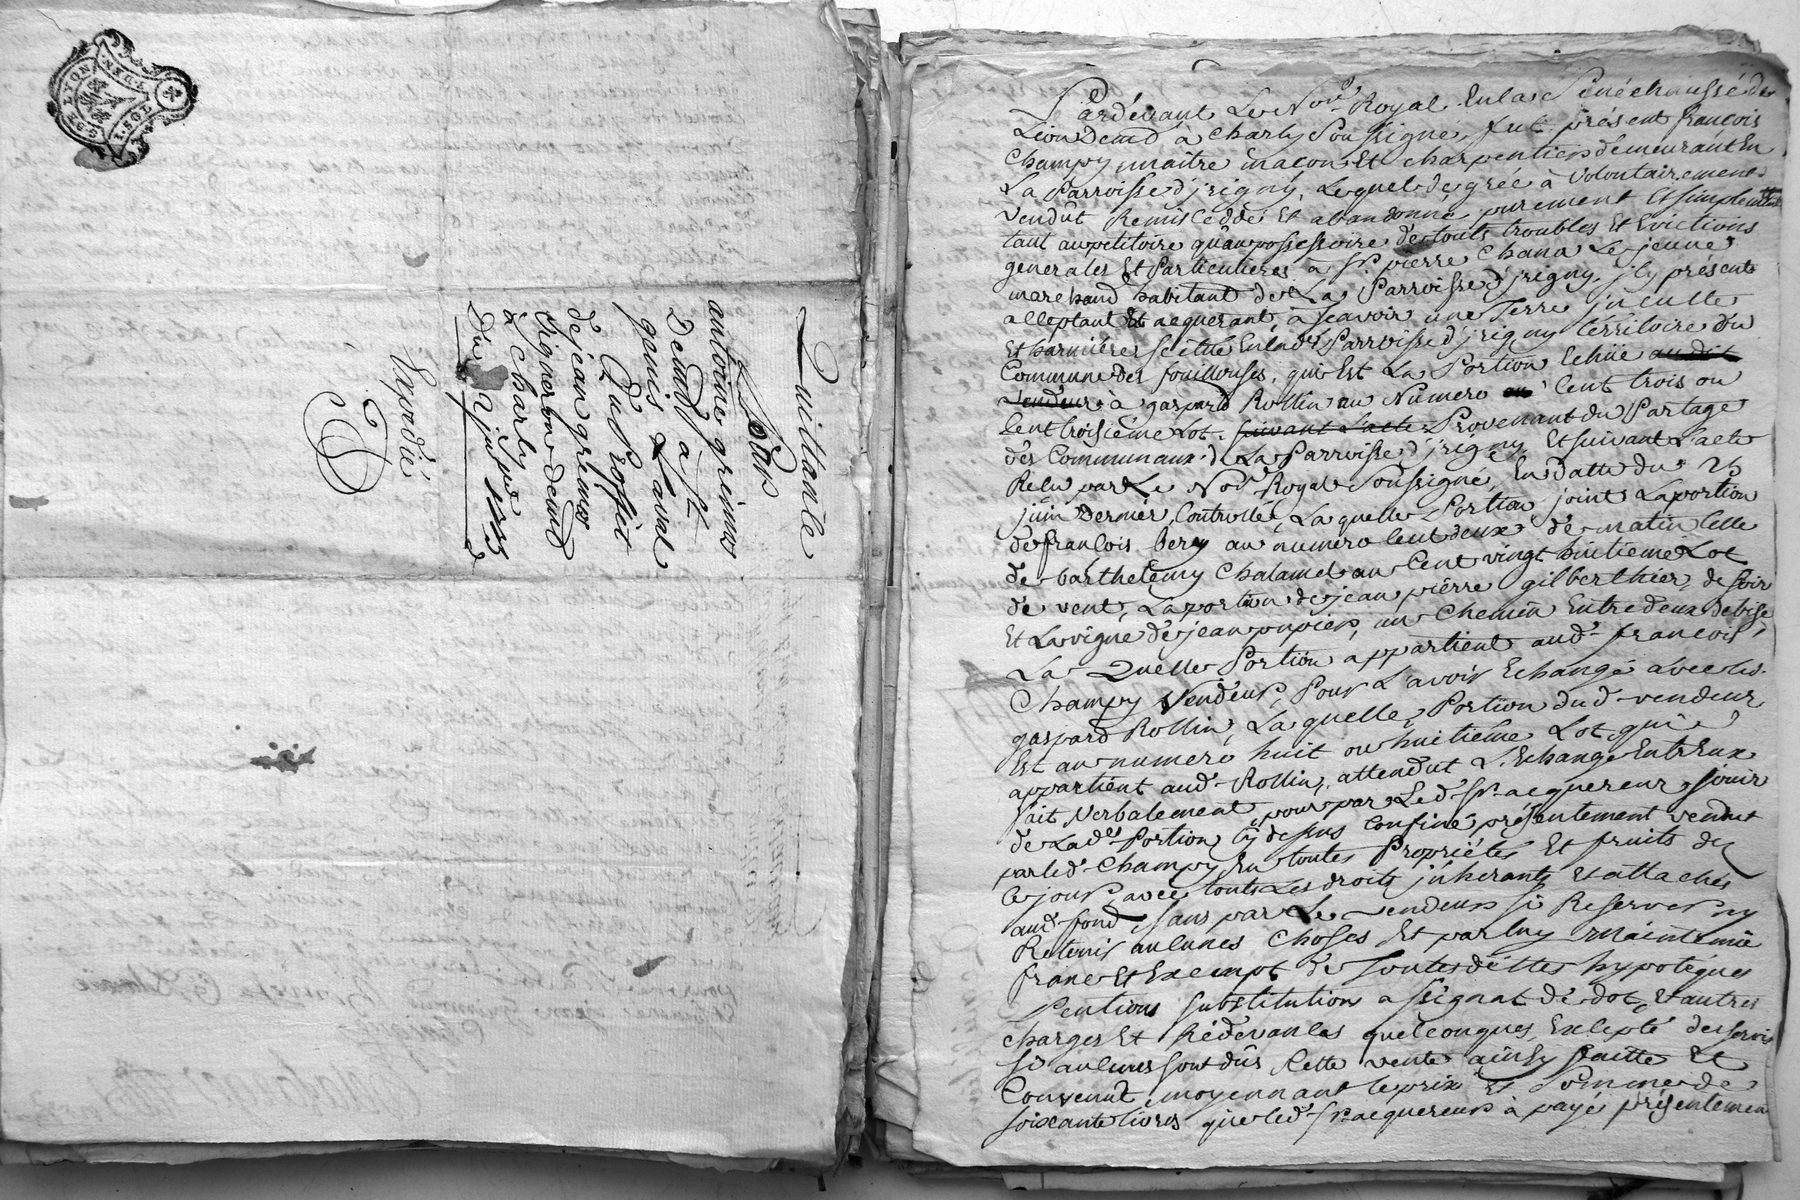 GEN. DE LYON
1. SOL
Quittance
antoine grimar
Demt. a St
genis Laval
a Proffit
de jean grimar
Vigneron demt
a Charly
Du 2 juin 1775
Expédié
Pardevant Le Nore Royal En la Sénéchaussé de
Lion Demt à Charly Soussigné, fut présent francois
Champy maitre macon Et charpentier demeurant En
La Parroisse d'jrigny, Lequel de gré à Volontairement
vendût Remis cedde Et abandonné purement Et simplement
tant au petitoire qu'au possessoire de touts troubles Et Evictions
generales Et Particulieres à Sr. pierre Chana Le jeune
marchand habitant de La Parroisse d'jrigny, jcy présent
acceptant Et acquerant, à scavoir une Terre jnculte
Et barniére scittué En lade Parroisse d'jrigny térritoire du
Commune des fouillouses, qui Est La Portion Echüe au dit
vendeur à gaspard Rollin au Numero Cent trois ou
Cent troisiéme Lot suivant L'acte Provenant du Partage
des Communaux de La Parroisse d'jrigny Et suivant L'acte
Recu par Le Nore Royal Soussigné En datte du 25
juin Dernier, Controllé, La quelle Portion joint La portion
de françois bery au numero Cent deux de matin Celle
de barthelemy Chalamel au Cent vingt huitieme Lot
de vent, La portion de jean pierre gilberthier, de soir
Et La vigne de jean pupier, un Chemin Entre deux de bise,
La Quelle Portion appartient aud. francois
Champy Vendeur, Pour L'avoir Echangé avec Led.
gaspard Rollin, La quelle Portion dud. vendeur
Est au numero huit ou huitieme Lot, qui
appartient aud. Rollin, attendut L'Echange Entr'Eux
fait Verbalement, pour par Led. Sr. acquereur jouir
de Lade Portion Cy dessus Confiné présentement vendut
par led. Champy En toutes Propriétés Et fruits dez
Ce jour, avec touts Les droits jnherants Et attachés
aud. fond, sans par Le vendeur Si Reserver ny
Retenir aucunes Choses Et par luy maintenüe
franc Et Exempt de Toutes déttes hypotéques
Pentions substitution assignat de dot, Et autres
charges Et Rédevances quelconques, Excepté des servis
Si aucuns sont dûs, Cette vente ainsy faitte Et
Convenüe moyennant le prix Et Somme de
soixante livres que led. Sr. acquereur à payé présentement